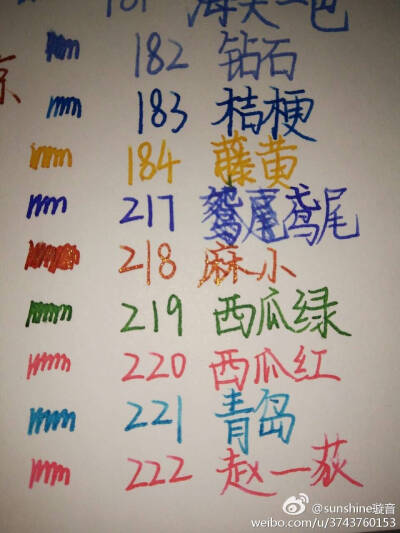 181 海天一色
182 钻石
183 桔梗
184 藤黄
217 鸢尾
218 麻小
219 西瓜绿
220 西瓜红
221 青岛
222 赵一荻
@sunshine璇音
weibo.com/u/3743760153